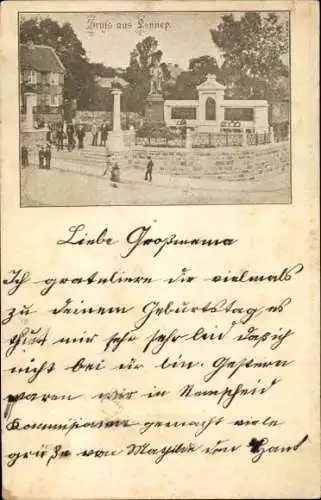 Gruss aus Lennep.
Liebe Großmema
Ich gratuliere dir vielmals
zu deinem Geburtstag, es
thut mir sehr sehr leid das ich
nicht bei dir bin. Gestern
waren wir in Remscheid
Kommissionen gemacht viele
grüße von Mathilde